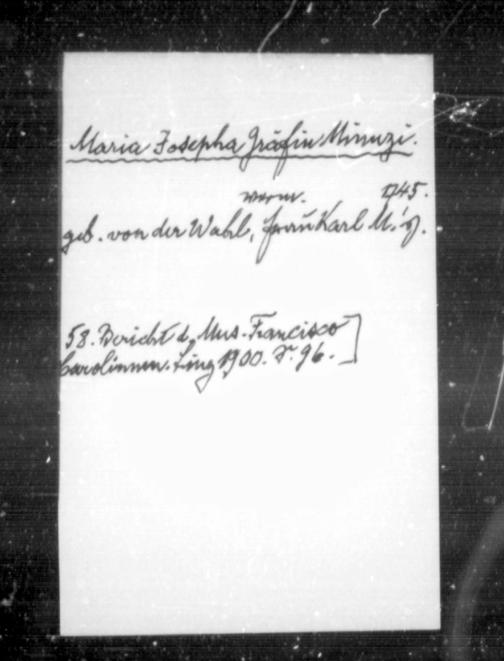 Maria Josepha Gräfin Minuzi.
verm. 1745.
geb. von der Wahl, Frau Karl M's.
58. Bericht d. Mus. Francisco
Carolinum. Linz 1900. S. 96.]